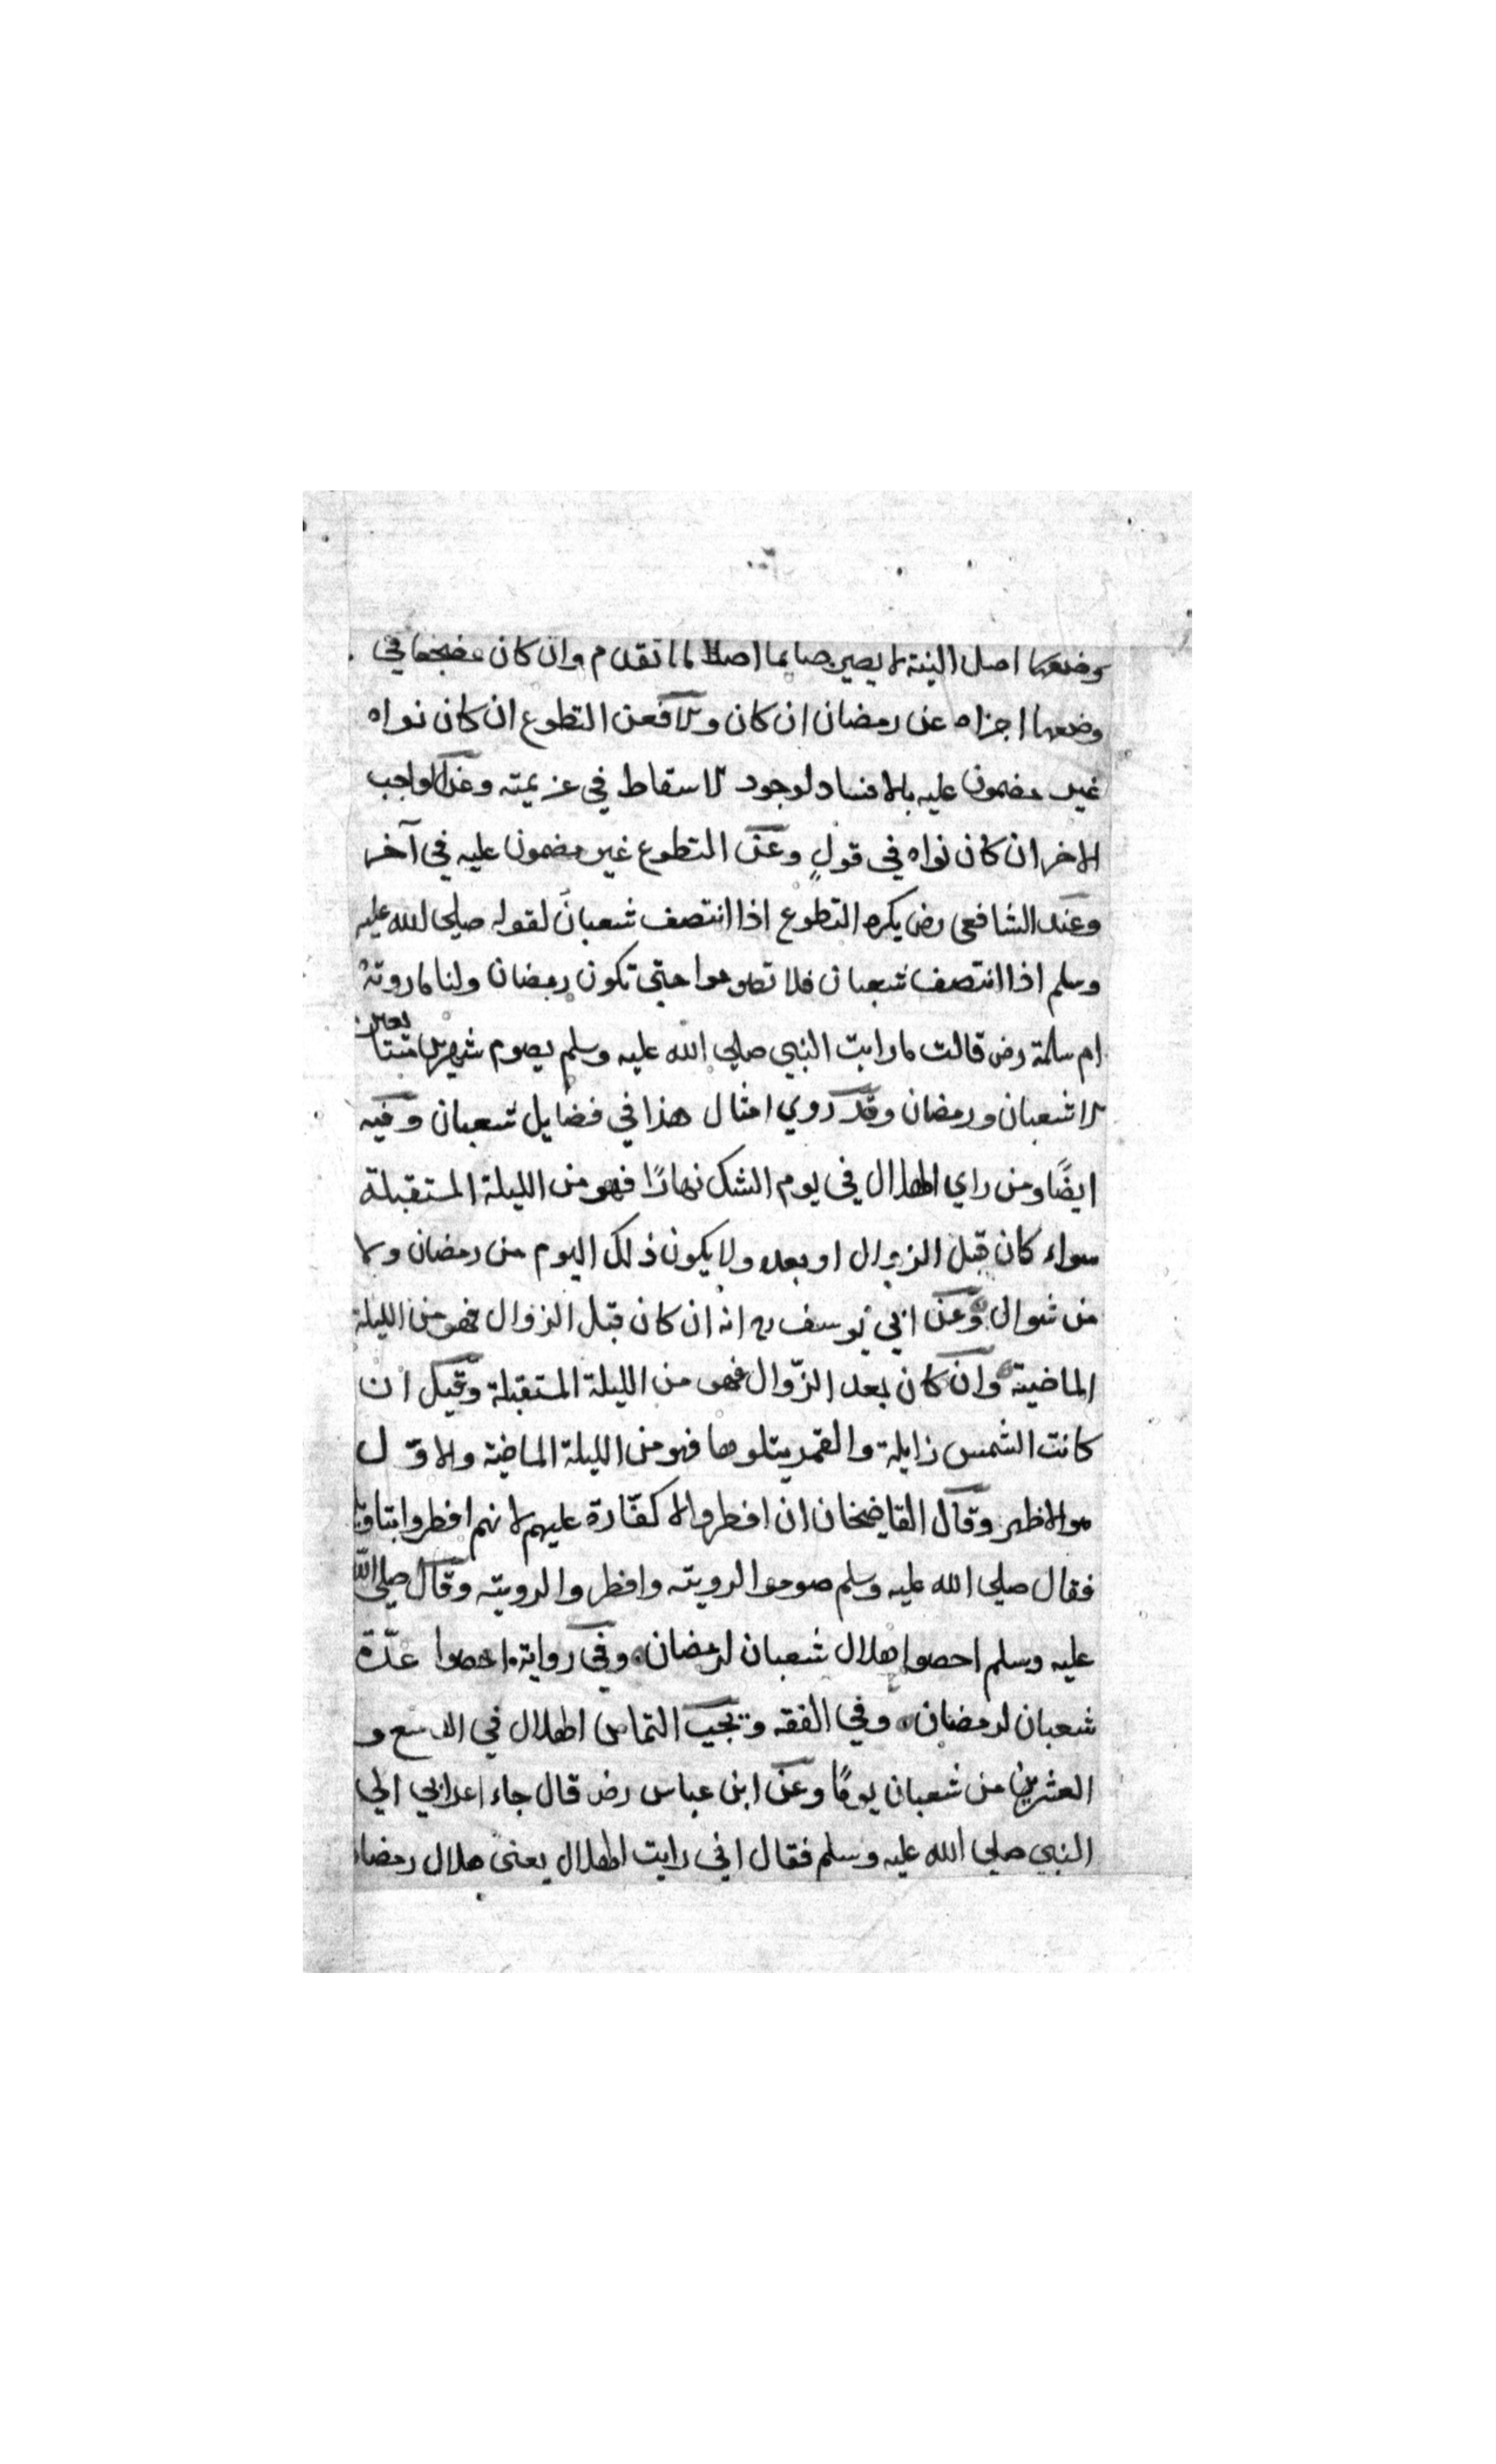 وضعها اصل النية لا يصير صايما اصلا لما تقدم وان كان مضجعا في
وضعها اجزاه عن رمضان ان كان والا فعن التطوع ان كان نواه
غير مضمون عليه بالافساد لوجود الاسقاط في عزيمته وعن الواجب
الاخر ان كان نواه في قولٍ وعن التطوع غير مضمون عليه في آخر
وعند الشافعي رض يكره التطوع اذا انتصف شعبان لقوله صلى الله عليه
وسلم اذا انتصف شعبان فلا تصوموا حتى تكون رمضان ولنا ما روته
ام سلمة رض قالت ما رايت النبي صلى الله عليه وسلم يصوم شهرين متتابعين
الا شعبان ورمضان وقد روي امثال هذا في فضايل شعبان وفيه
ايضًا ومن راي الهلال في يوم الشك نهارًا فهو من الليلة المستقبلة
سواء كان قبل الزوال او بعده ولا يكون ذلك اليوم من رمضان ولا
من شوال وعن ابي يوسف رح انه ان كان قبل الزوال فهو من الليلة
الماضية وان كان بعد الزّوال فهو من الليلة المستقبلة وقيل ان
كانت الشمس زايلة والقمر يتلوها فهو من الليلة الماضية والاوّل
هو الاظهر وقال القاضيخان ان افطروا لا كفّارة عليهم لانهم افطروا بتاويل
فقال صلى الله عليه وسلم صوموا لرويته وافطروا لرويته وقال صلى الله
عليه وسلم احصوا هلال شعبان لرمضان وفي رواية احصوا عدّة
شعبان لرمضان وفي الفقه ويجب التماس الهلال في التاسع و
العشرين من شعبان يومًا وعن ابن عباس رض قال جاء اعرابي الي
النبي صلى الله عليه وسلم فقال اني رايت الهلال يعني هلال رمضان